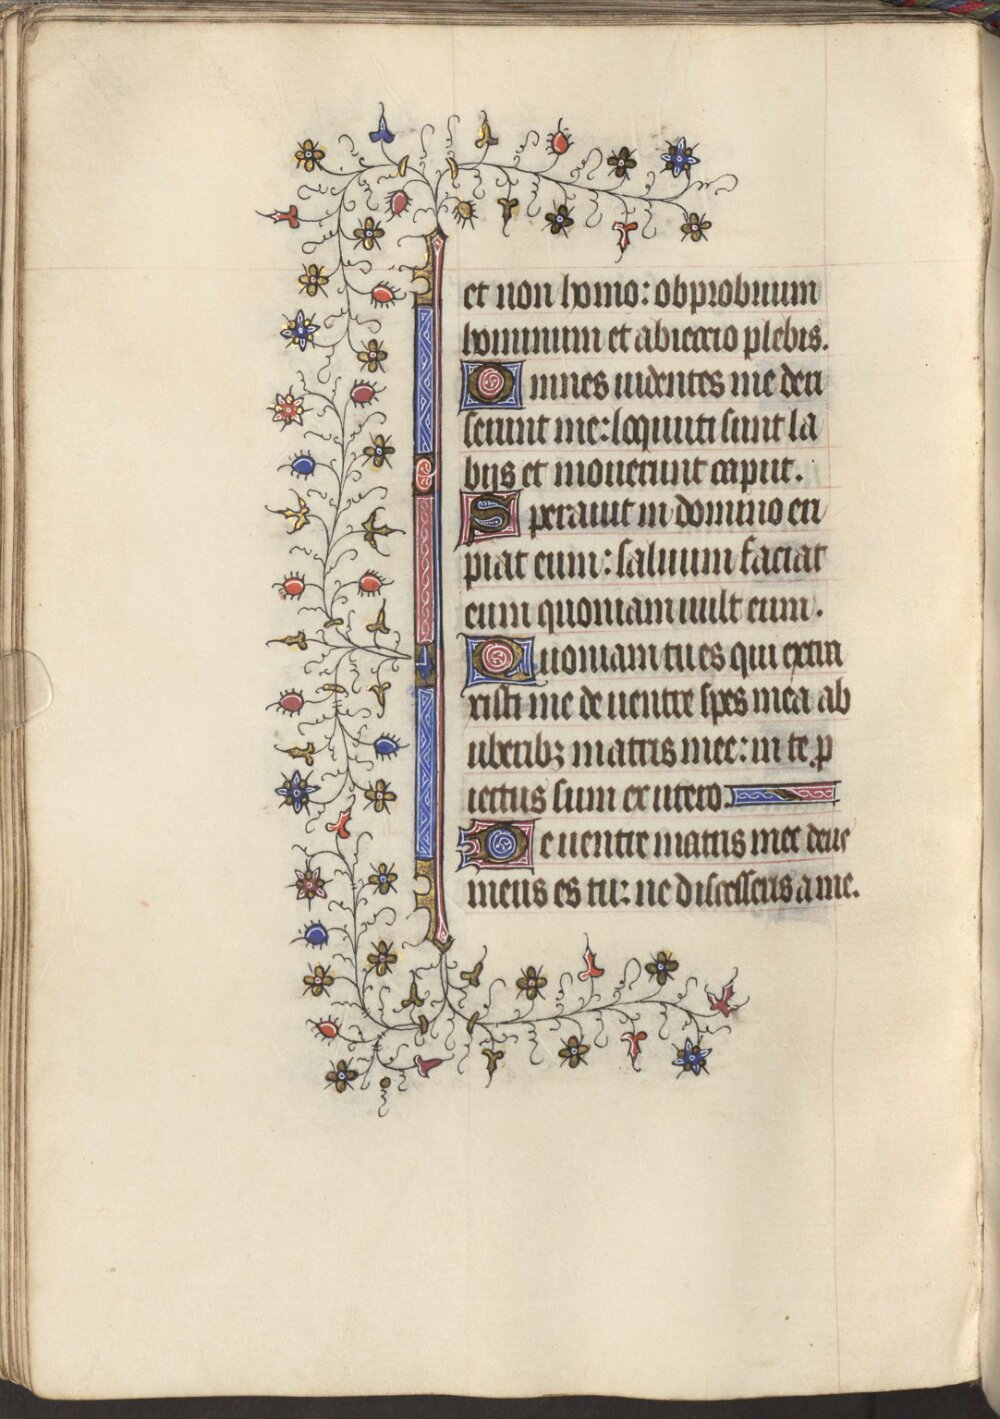 et non homo: obprobrium
hominum et abiectio plebis.
Omnes uidentes me deri
serunt me: loquuti sunt la
bijs et mouerunt caput.
Sperauit in domino eri
piat eum: saluum faciat
eum quoniam uult eum.
Quoniam tu es qui extra
xisti me de uentre spes mea ab
uberibꝫ matris mee: in te ꝓ
iectus sum ex utero.
De uentre matris mee deus
meus es tu: ne discesseris a me.